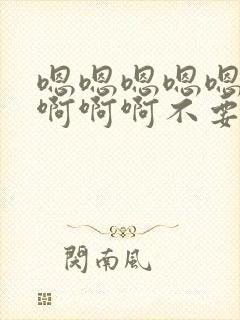 嗯嗯嗯嗯嗯
啊啊啊不要
関南风